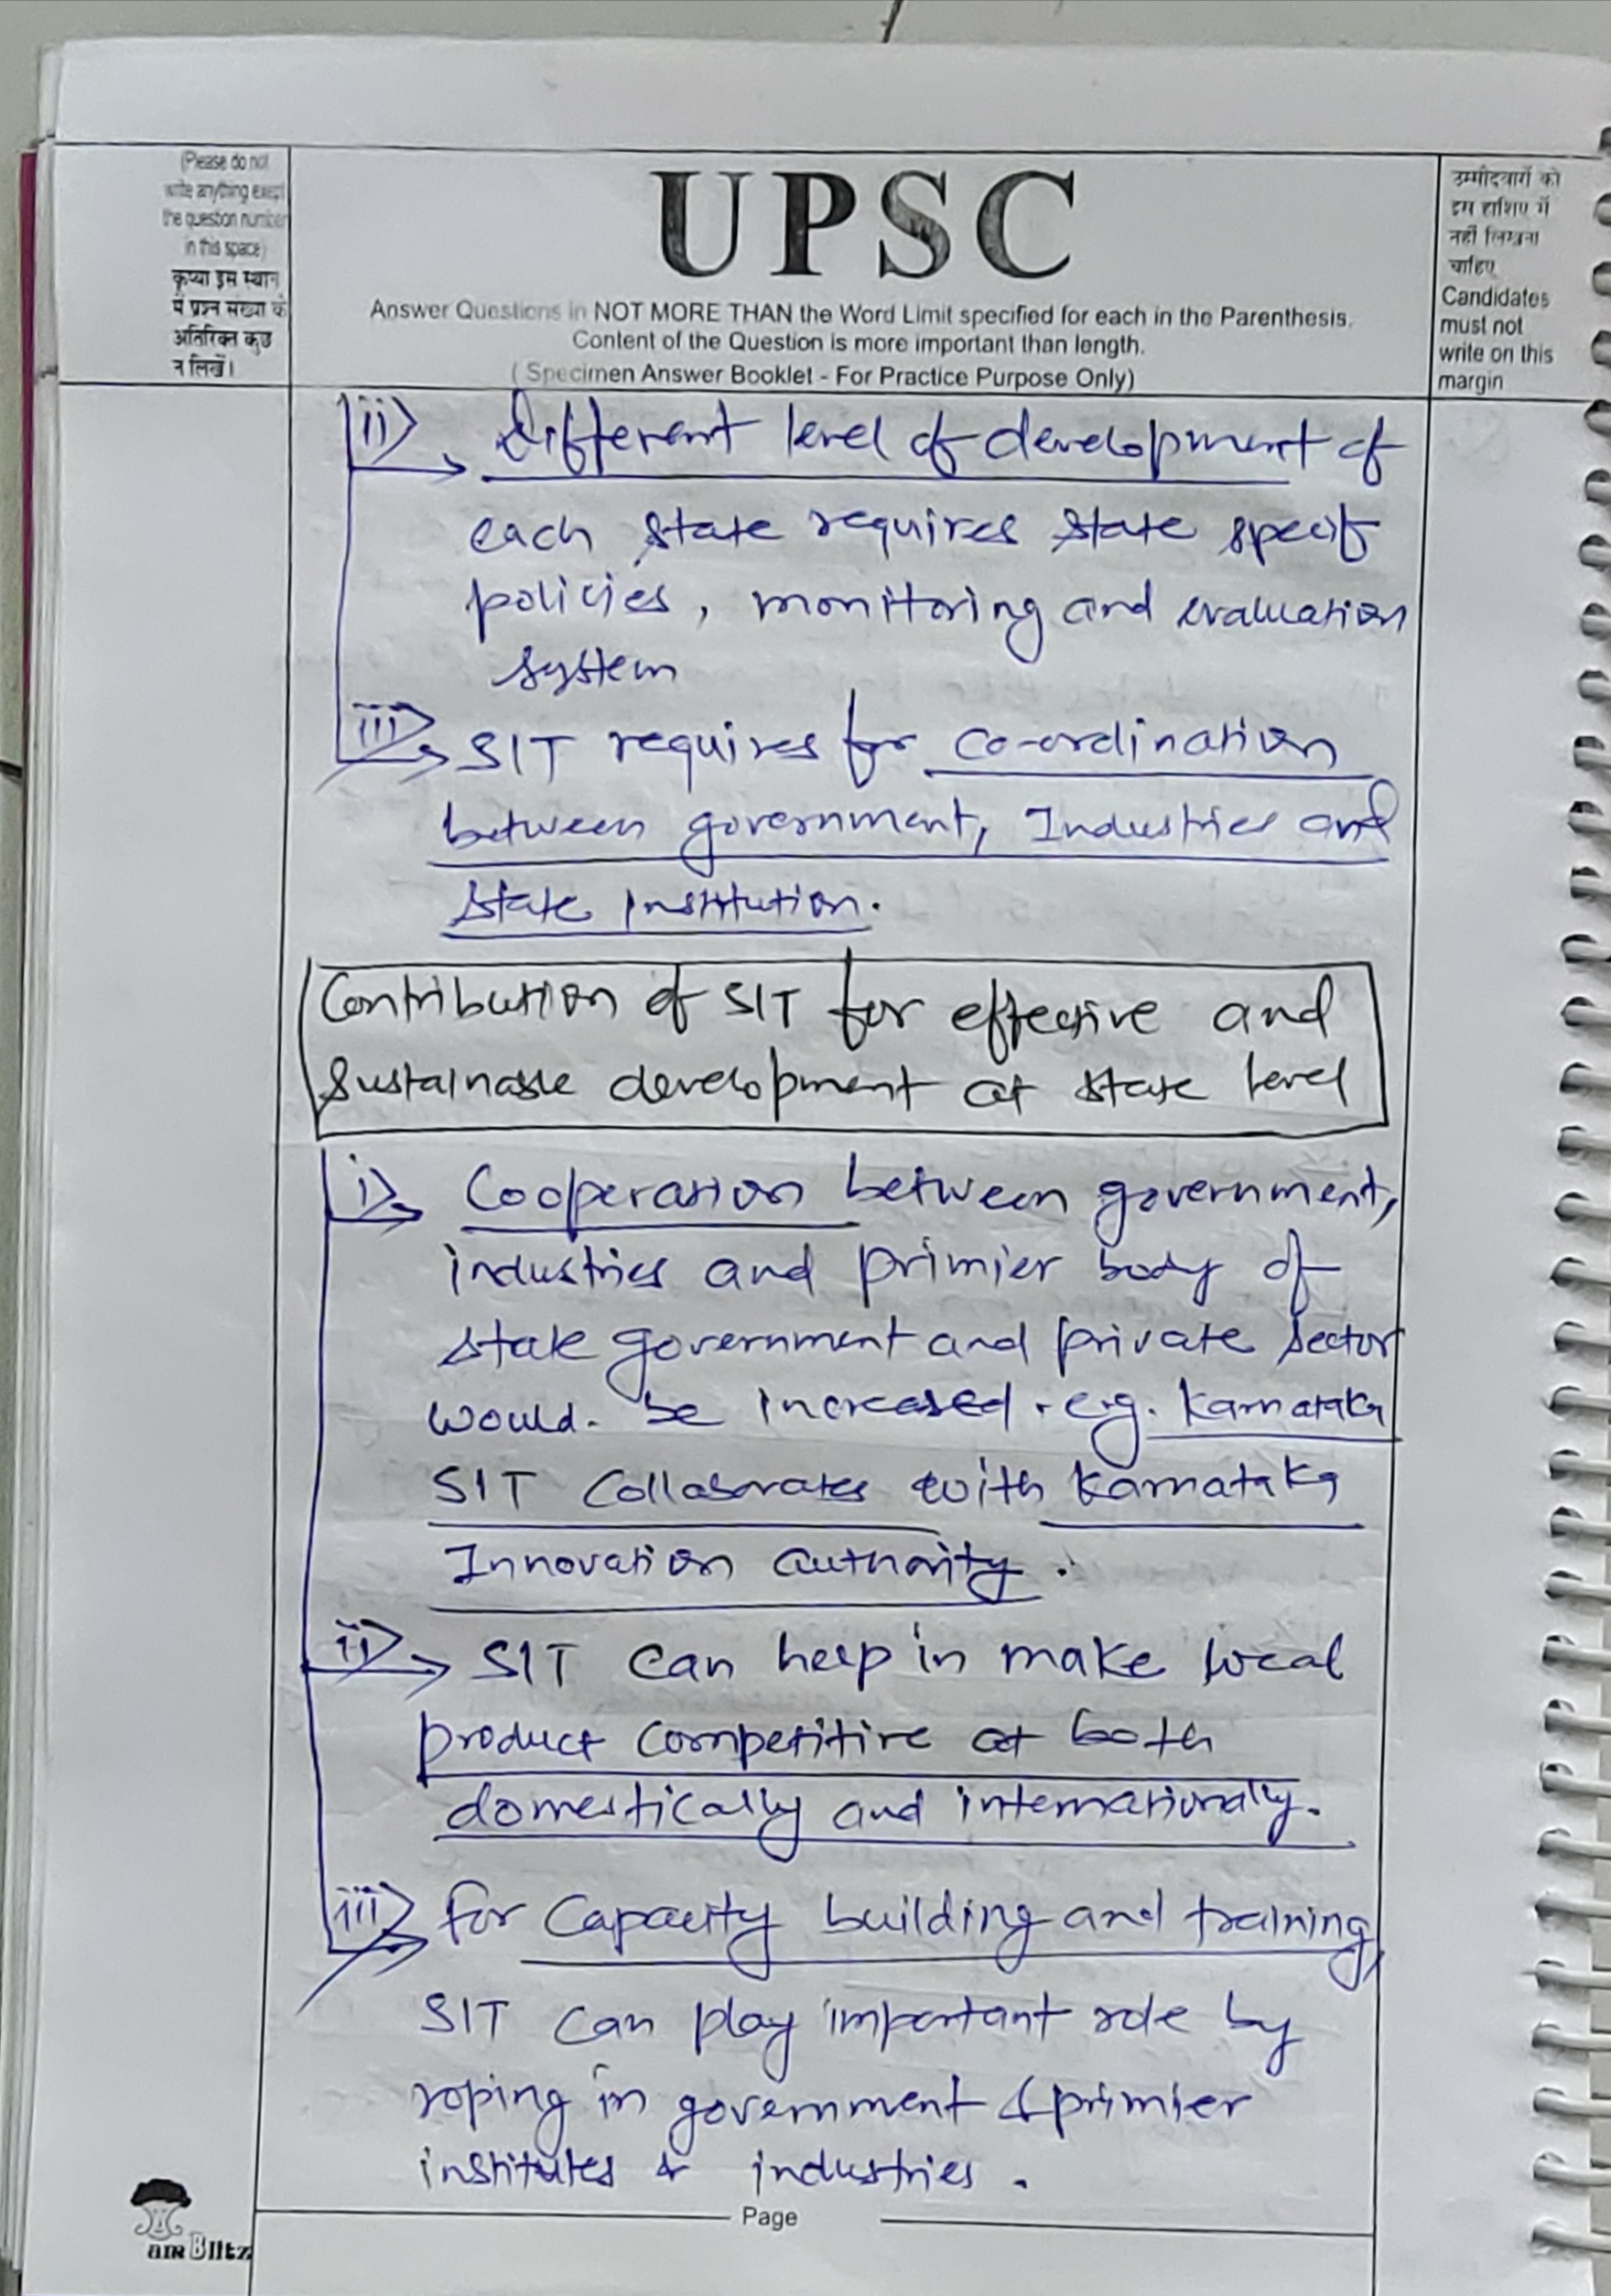 (Please do not
write anything exept
the question number
in this space)
कृप्या इस स्थान
में प्रश्न संख्या के
अतिरिक्त कुछ
न लिखें।
UPSC
Answer Questions in NOT MORE THAN the Word Limit specified for each in the Parenthesis.
Content of the Question is more important than length.
( Specimen Answer Booklet - For Practice Purpose Only)
उम्मीदवारों को
इस हाशिए में
नहीं लिखना
चाहिए
Candidates
must not
write on this
margin
ii) Different level of development of
each state requires state specif
policies, monitoring and evaluation
system
iii) SIT requires for co-ordination
between government, Industries and
state institution.
Contribution of SIT for effective and
sustainable development at state level
i) Cooperation between government,
industries and primier body of
state government and private sector
would be increased. e.g. Karnataka
SIT Collaborates with Karnataka
Innovation authority.
ii) SIT can help in make local
product competitive at both
domestically and internationally.
iii) for capacity building and training,
SIT can play important role by
roping in government & primier
institutes & industries.
Page
amBlitz